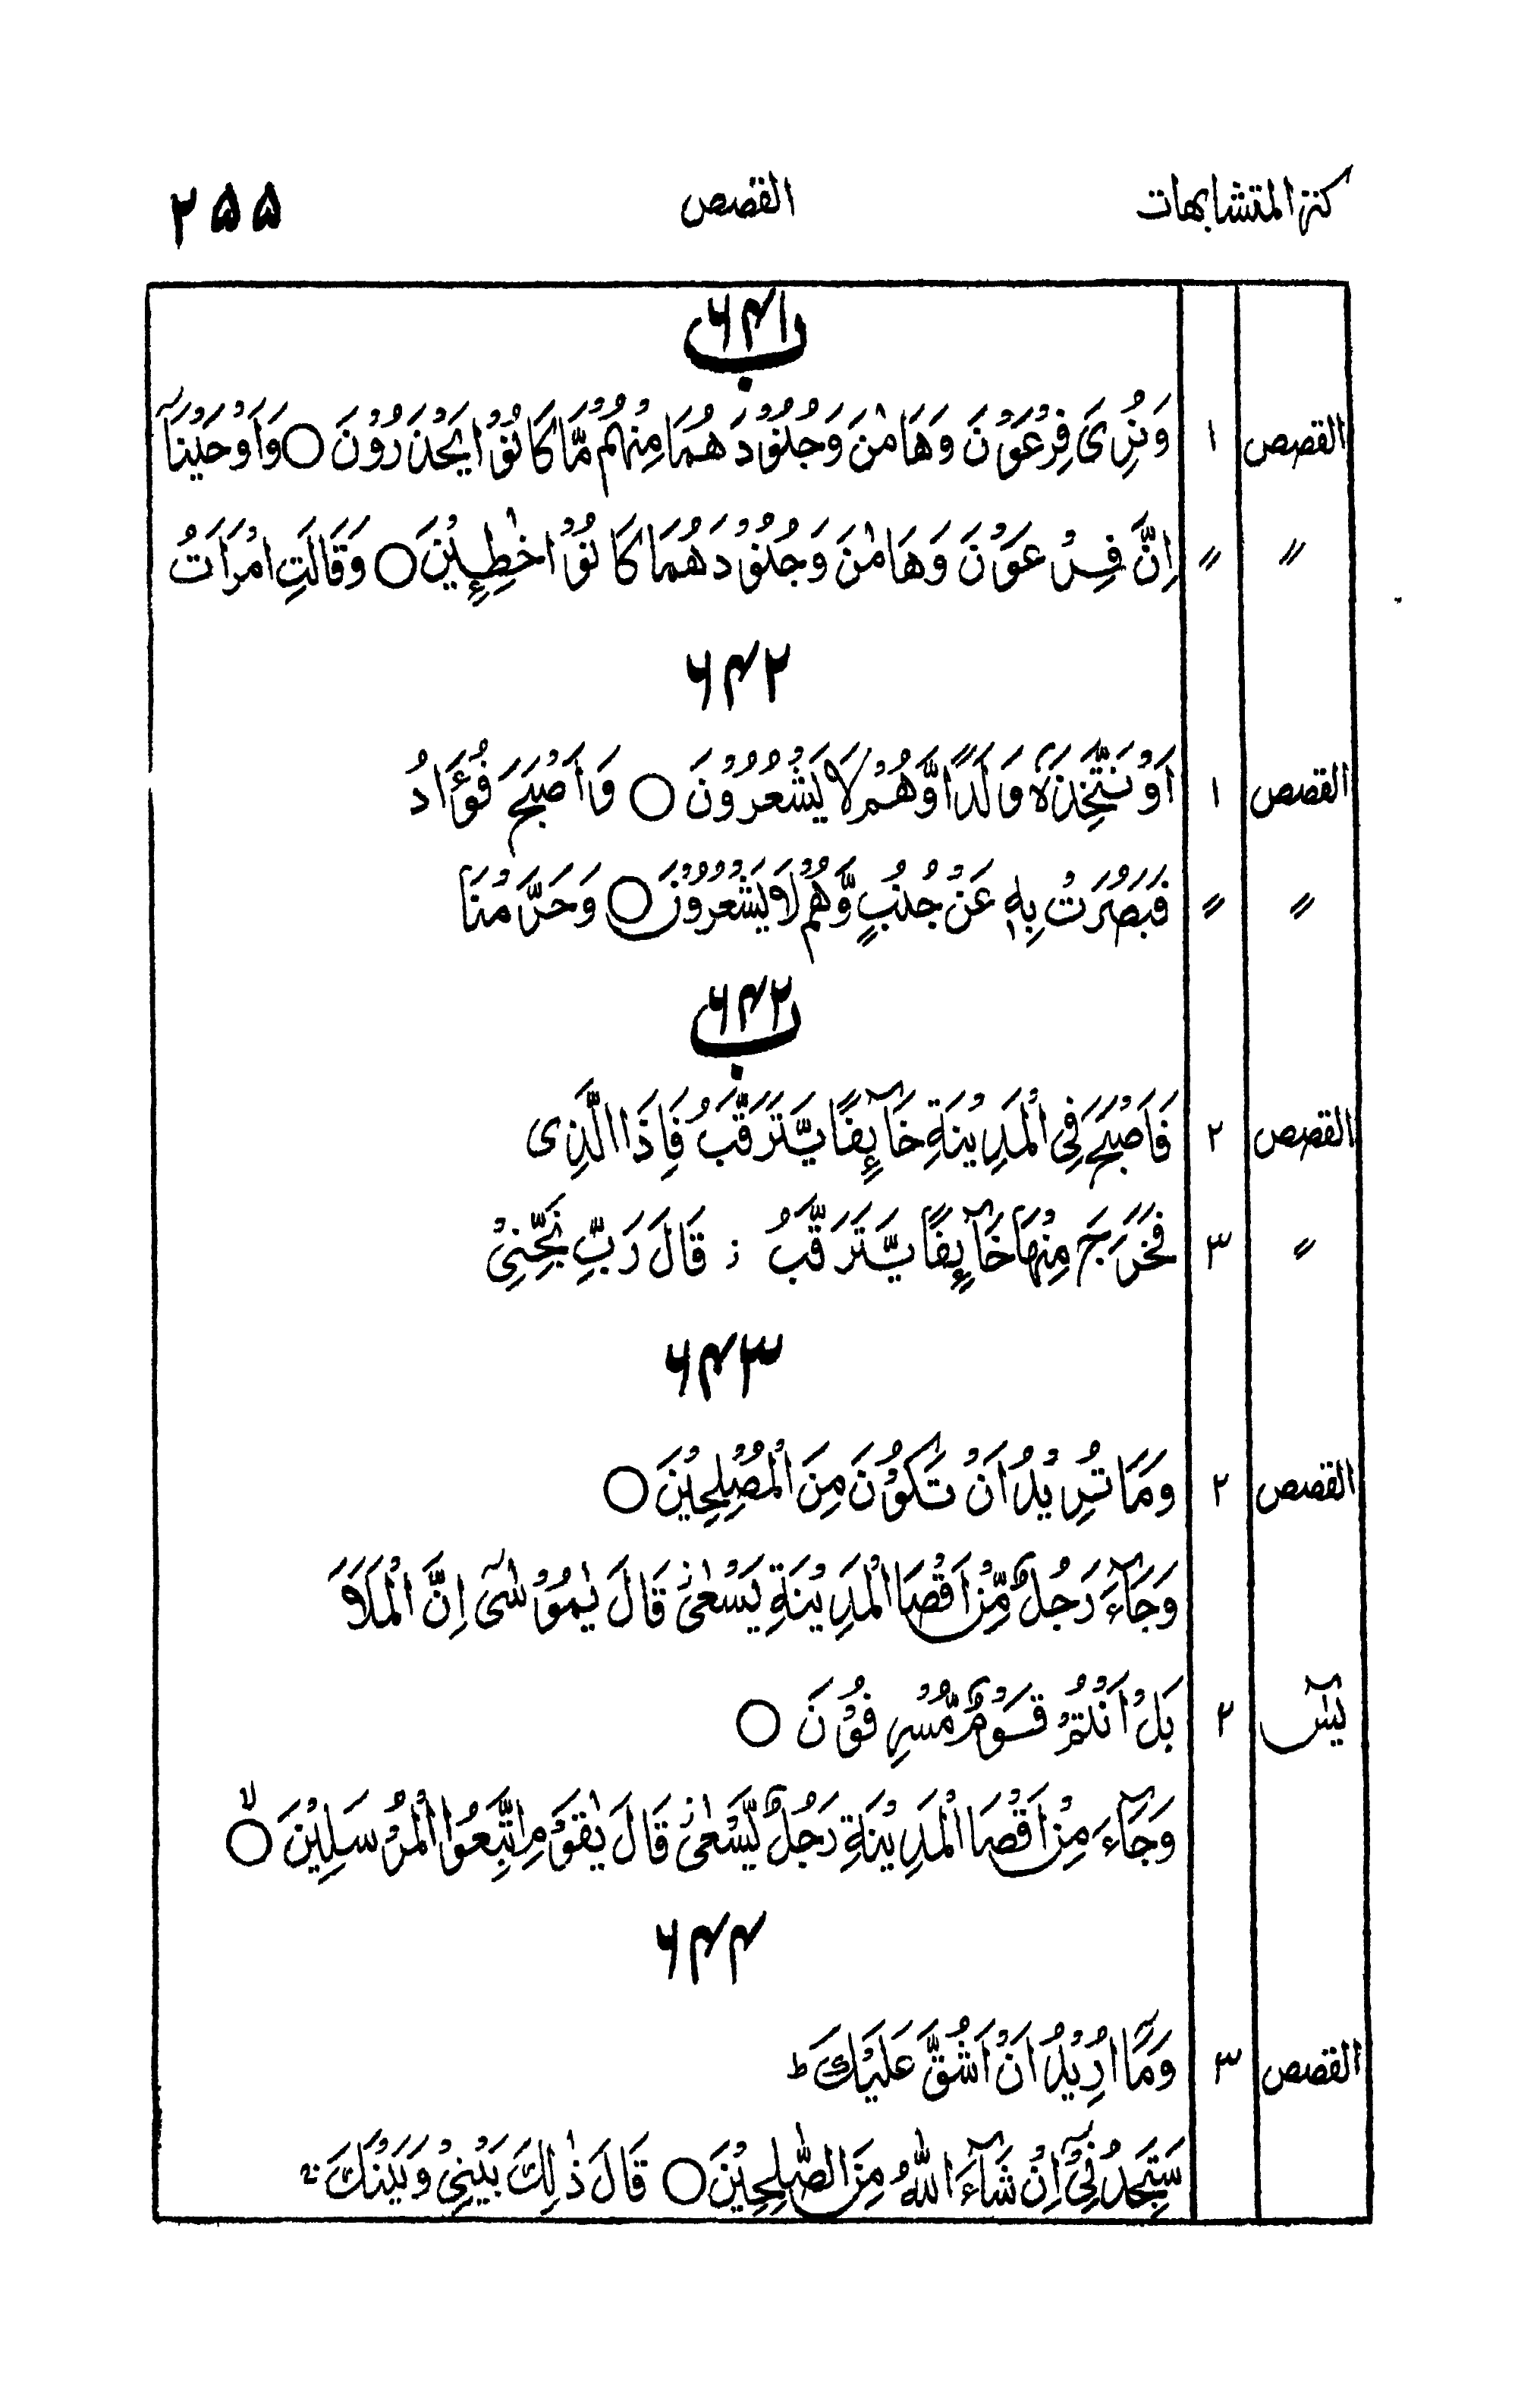 كنز المتشابهات القصص ۲۵۵
۶۴۱ ب
القصص ۱ وَنُرِیَ فِرْعَوْنَ وَهَامٰنَ وَجُنُوْدَهُمَا مِنْهُمْ مَّا كَانُوْا يَحْذَرُوْنَ ○ وَاَوْحَيْنَآ
〃 〃 اِنَّ فِرْعَوْنَ وَهَامٰنَ وَجُنُوْدَهُمَا كَانُوْا خٰطِـِٕيْنَ ○ وَقَالَتِ امْرَاَتُ
۶۴۲
القصص ۱ اَوْ نَتَّخِذَهٗ وَلَدًا وَّهُمْ لَا يَشْعُرُوْنَ ○ وَاَصْبَحَ فُؤَادُ
〃 〃 فَبَصُرَتْ بِهٖ عَنْ جُنُبٍ وَّهُمْ لَا يَشْعُرُوْنَ ○ وَحَرَّمْنَا
۶۴۲ ب
القصص ۲ فَاَصْبَحَ فِی الْمَدِيْنَةِ خَآئِفًا يَّتَرَقَّبُ فَاِذَا الَّذِی
〃 ۳ فَخَرَجَ مِنْهَا خَآئِفًا يَّتَرَقَّبُ ز قَالَ رَبِّ نَجِّنِیْ
۶۴۳
القصص ۲ وَمَا تُرِيْدُ اَنْ تَكُوْنَ مِنَ الْمُصْلِحِيْنَ ○
وَجَآءَ رَجُلٌ مِّنْ اَقْصَا الْمَدِيْنَةِ يَسْعٰىز قَالَ يٰمُوْسٰٓی اِنَّ الْمَلَاَ
يٰسٓ ۲ بَلْ اَنْتُمْ قَوْمٌ مُّسْرِفُوْنَ ○
وَجَآءَ مِنْ اَقْصَا الْمَدِيْنَةِ رَجُلٌ يَّسْعٰىز قَالَ يٰقَوْمِ اتَّبِعُوا الْمُرْسَلِيْنَ ○ۙ
۶۴۴
القصص ۳ وَمَآ اُرِيْدُ اَنْ اَشُقَّ عَلَيْكَ ط
سَتَجِدُنِیْٓ اِنْ شَآءَ اللّٰهُ مِنَ الصّٰلِحِيْنَ ○ قَالَ ذٰلِكَ بَيْنِیْ وَبَيْنَكَ